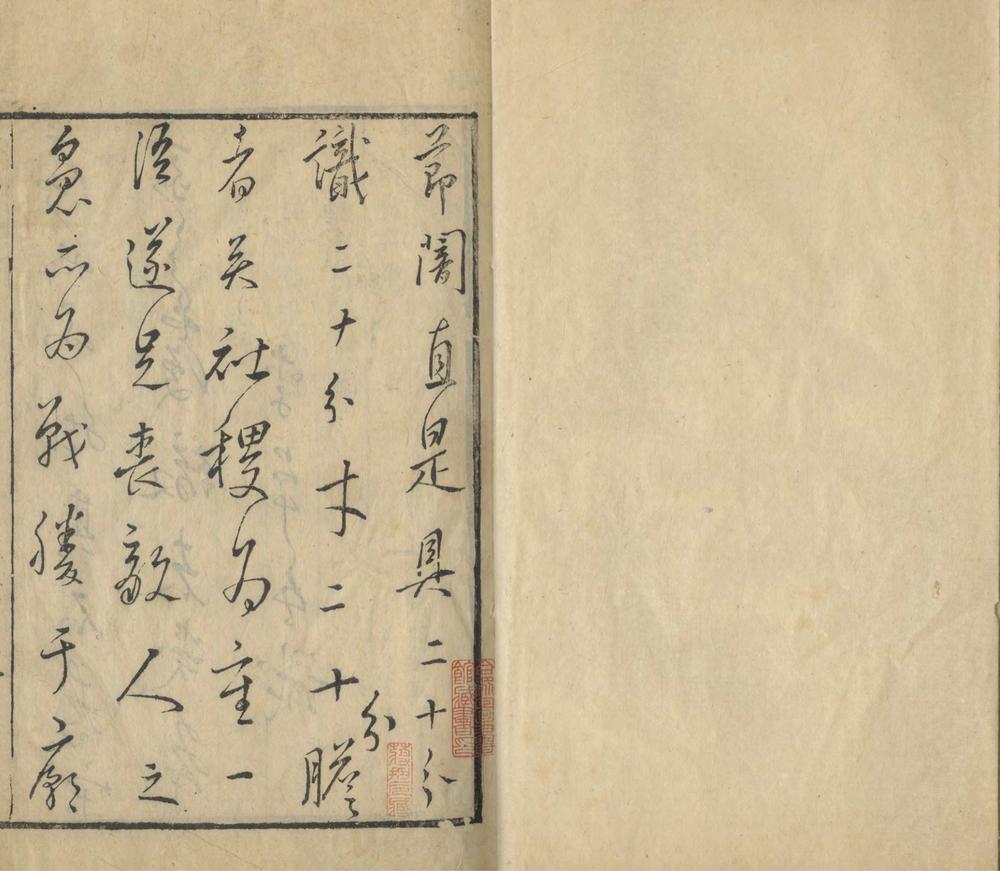 節闇直是具二十分
識二十分才二十分膽
者矣社稷為重一
語遂足喪敵人之
為戰勝于廟